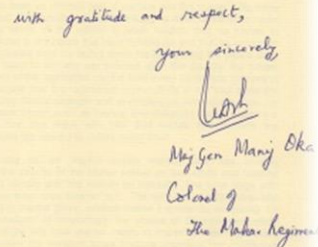 with gratitude and respect,
your sincerely,
Maj Gen Manoj Oka
Colonel of
The Mahar Regimen